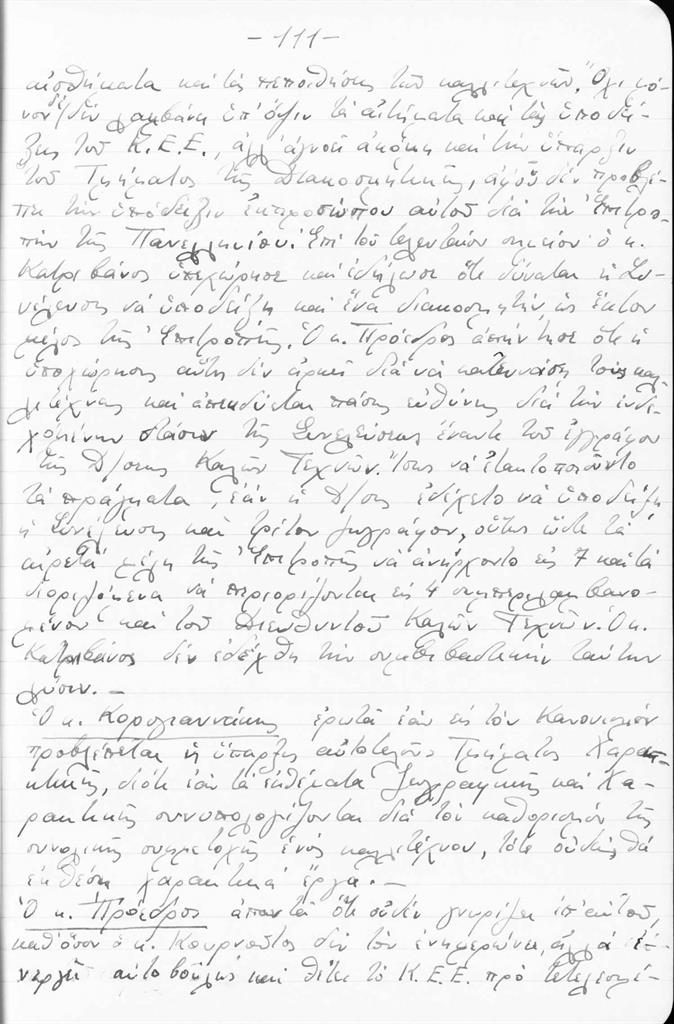 -111-
αἰσθήματα καὶ τὰς πεποιθήσεις τῶν καλλιτεχνῶν. Ὄχι μό-
νον δὲ δὲν λαμβάνει ὑπ' ὄψιν τὰ αἰτήματα καὶ τὰς ὑποδεί-
ξεις τοῦ Κ.Ε.Ε., ἀλλ' ἀγνοεῖ ἀκόμη καὶ τὴν ὕπαρξιν
τοῦ Τμήματος τῆς Διακοσμητικῆς, ἀφοῦ δὲν προβλέ-
πει τὴν ὑπόδειξιν ἐκπροσώπου αὐτοῦ διὰ τὴν Ἐπιτρο-
πὴν τῆς Πανελληνίου. Ἐπὶ τοῦ τελευταίου σημείου ὁ κ.
Κατριβάνος ὑπεχώρησε καὶ ἐδήλωσε ὅτι δύναται ἡ Συ-
νέλευσις νὰ ὑποδείξῃ καὶ ἕνα διακοσμητήν, ὡς ἕκτον
μέλος τῆς Ἐπιτροπῆς. Ὁ κ. Πρόεδρος ἀπήντησε ὅτι ἡ
ὑποχώρησις αὕτη δὲν ἀρκεῖ διὰ νὰ κατευνάσῃ τοὺς καλ-
λιτέχνας καὶ ἀπεκδύεται πάσης εὐθύνης διὰ τὴν ἐνδε-
χομένην στάσιν τῆς Συνελεύσεως ἔναντι τοῦ ἐγγράφου
τῆς Δ/σεως Καλῶν Τεχνῶν. Ἴσως νὰ ἐτακτοποιοῦντο
τὰ πράγματα, ἐὰν ἡ Δ/σις ἐδέχετο νὰ ὑποδείξῃ
ἡ Συνέλευσις καὶ τρίτον ζωγράφον, οὕτως ὥστε τὰ
αἱρετὰ μέλη τῆς Ἐπιτροπῆς νὰ ἀνήρχοντο εἰς 7 καὶ τὰ
διοριζόμενα νὰ περιορίζονται εἰς 4 συμπεριλαμβανο-
μένου καὶ τοῦ Διευθυντοῦ Καλῶν Τεχνῶν. Ὁ κ.
Κατριβάνος δὲν ἐδέχθη τὴν συμβιβαστικὴν ταύτην
λύσιν. –
Ὁ κ. Κορογιαννάκης ἐρωτᾶ ἐὰν εἰς τὸν Κανονισμὸν
προβλέπεται ἡ ὕπαρξις αὐτοτελοῦς Τμήματος Χαρα-
κτικῆς, διότι ἐὰν τὰ ἐκθέματα Ζωγραφικῆς καὶ Χα-
ρακτικῆς συνυπολογίζονται διὰ τὸν καθορισμὸν τῆς
συνολικῆς συμμετοχῆς ἑνὸς καλλιτέχνου, τότε οὐδεὶς θὰ
ἐκθέσῃ χαρακτικὰ ἔργα. –
Ὁ κ. Πρόεδρος ἀπαντᾶ ὅτι οὐδὲν γνωρίζει ἐπ' αὐτοῦ,
καθ' ὅσον ὁ κ. Κουρνοῦτος δὲν τὸν ἐνημερώνει, ἀλλὰ ἐ-
νεργεῖ αὐτοβούλως καὶ θέτει τὸ Κ.Ε.Ε. πρὸ τετελεσμέ-